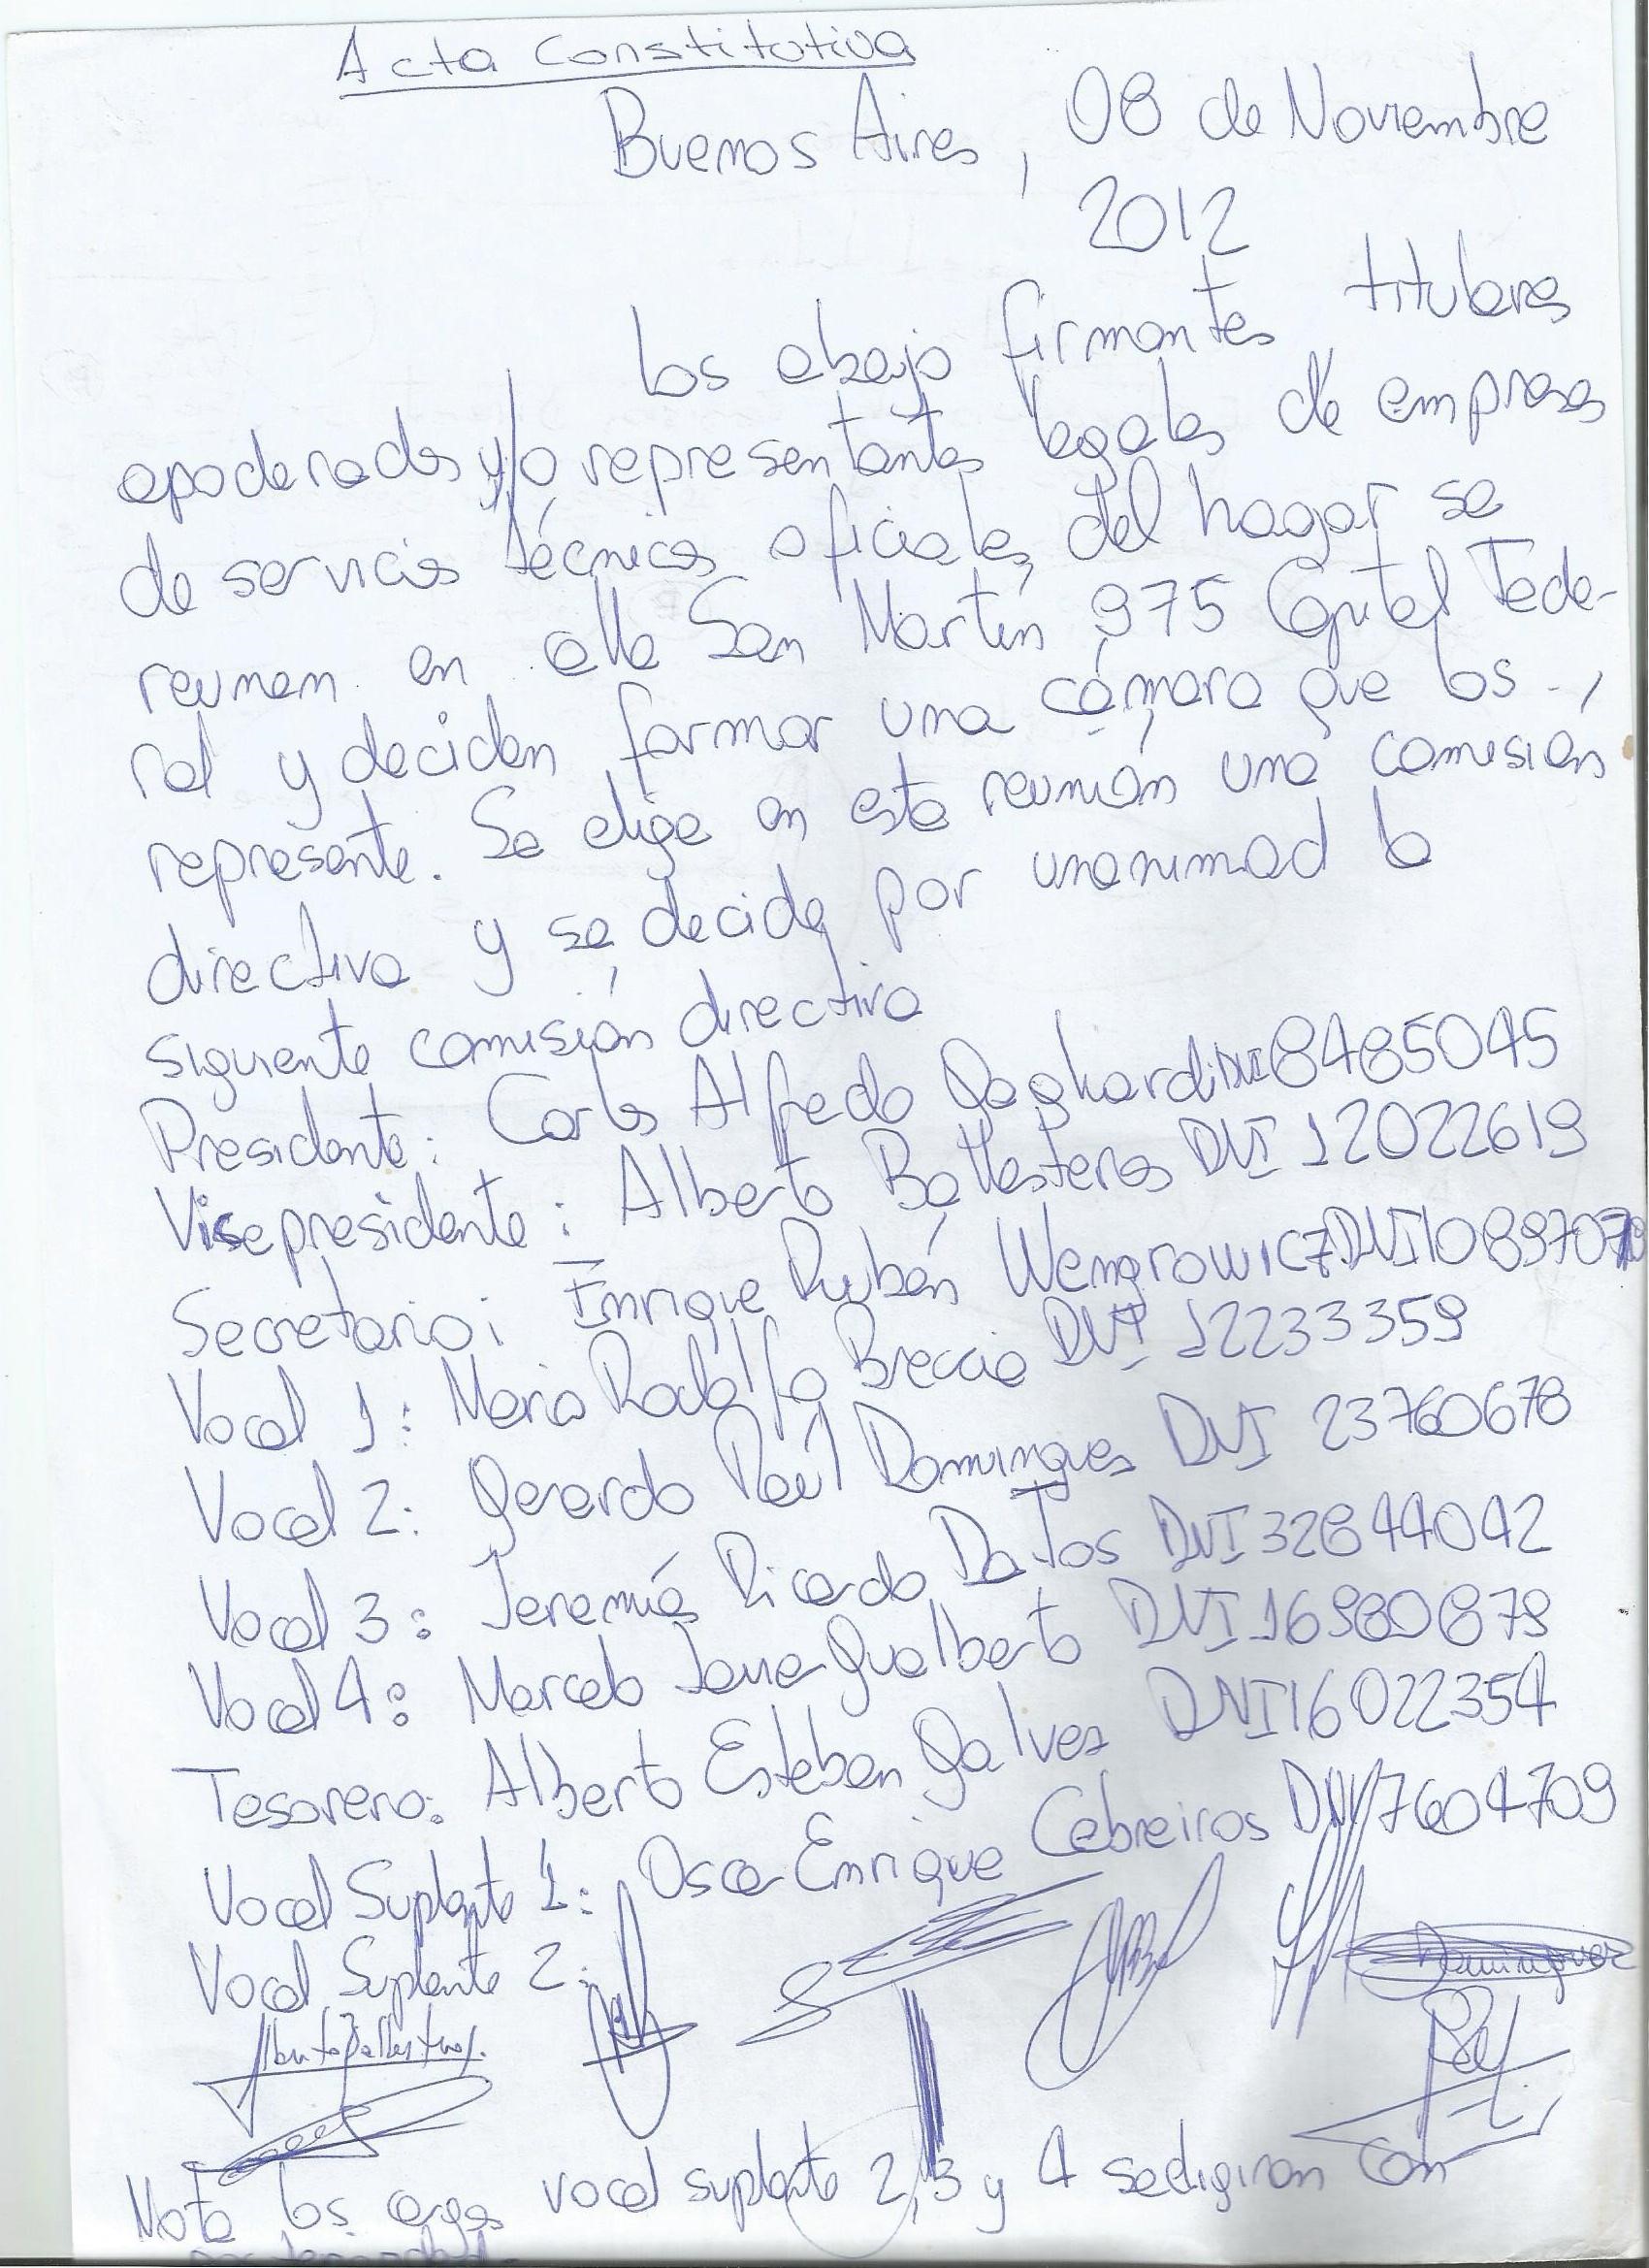 Acta Constitutiva
Buenos Aires, 08 de Noviembre
2012
Los abajo firmantes titulares
apoderados y/o representantes legales de empresas
de servicios técnicos oficiales del hogar se
reunen en calle San Martín 975 Capital Fede-
ral y deciden formar una cámara que los
represente. Se elige en esta reunión una comisión
directiva y se decide por unanimad la
siguiente comisión directiva
Presidente: Carlos Alfredo Pagliardi DNI 8485045
Visepresidente: Alberto Ballesteros DNI 12022619
Secretario: Enrique Rubén Wengrowicz DNI 1089707
Vocal 1: Mario Rodolfo Breccia DNI 12233359
Vocal 2: Gerardo Raúl Domingues DNI 23760678
Vocal 3: Jeremías Ricardo Da Tos DNI 32844042
Vocal 4: Marcelo Javier Gualberto DNI 16980879
Tesorero: Alberto Esteban Galvez DNI 16022354
Vocal Suplente 1: Oscar Enrique Cebreiros DNI 7604709
Vocal Suplente 2:
Dominguez
Alberto Ballesteros
Nota los cargos vocal suplente 2, 3 y 4 se eligiran con